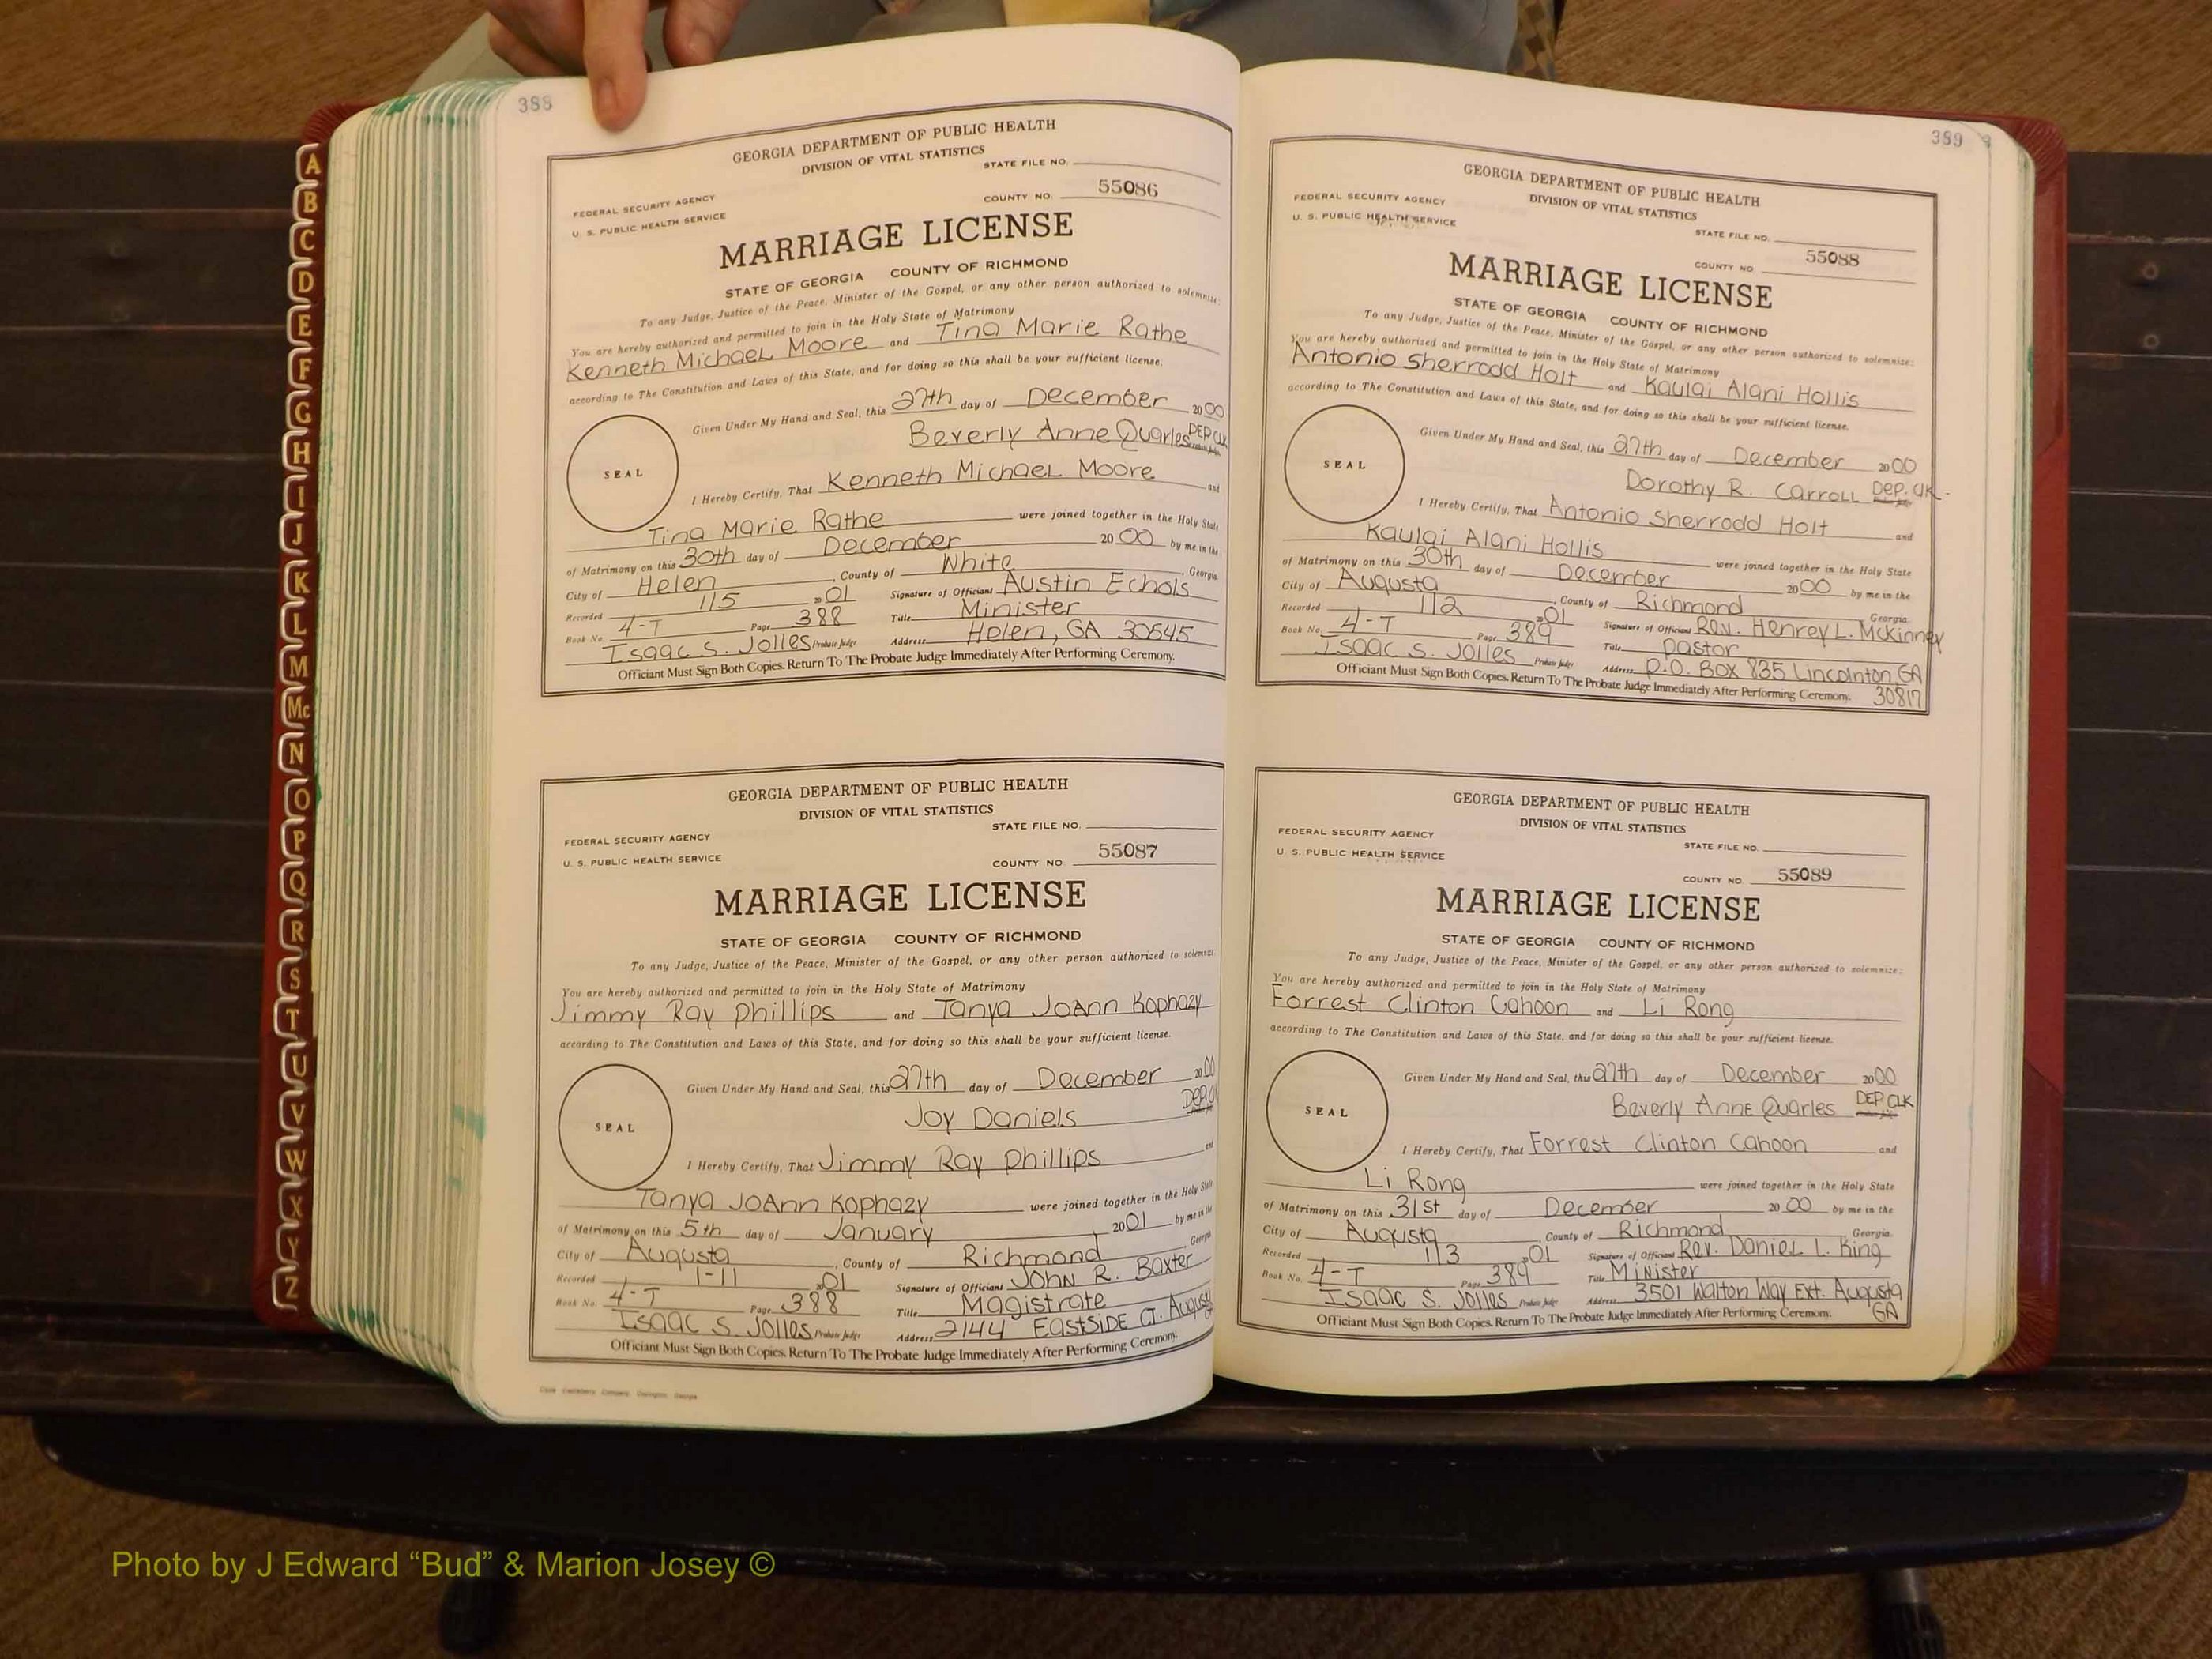 388
GEORGIA DEPARTMENT OF PUBLIC HEALTH
DIVISION OF VITAL STATISTICS
STATE FILE NO.
FEDERAL SECURITY AGENCY
U. S. PUBLIC HEALTH SERVICE
COUNTY NO. 55086
MARRIAGE LICENSE
STATE OF GEORGIA COUNTY OF RICHMOND
To any Judge, Justice of the Peace, Minister of the Gospel, or any other person authorized to solemnize:
You are hereby authorized and permitted to join in the Holy State of Matrimony
Kenneth Michael Moore and Tina Marie Rathe
according to The Constitution and Laws of this State, and for doing so this shall be your sufficient license.
Given Under My Hand and Seal, this 27th day of December 2000
Beverly Anne Quarles DEP CLK
SEAL
I Hereby Certify, That Kenneth Michael Moore and
Tina Marie Rathe were joined together in the Holy State
of Matrimony on this 30th day of December 2000 by me in the
City of Helen, County of White, Georgia
Recorded 1/5 2001 Signature of Officiant Austin Echols
Book No. 4-T Page 388 Title Minister
Isaac S. Jolles Probate Judge Address Helen, GA 30545
Officiant Must Sign Both Copies. Return To The Probate Judge Immediately After Performing Ceremony.
GEORGIA DEPARTMENT OF PUBLIC HEALTH
DIVISION OF VITAL STATISTICS
STATE FILE NO.
FEDERAL SECURITY AGENCY
U. S. PUBLIC HEALTH SERVICE
COUNTY NO. 55087
MARRIAGE LICENSE
STATE OF GEORGIA COUNTY OF RICHMOND
To any Judge, Justice of the Peace, Minister of the Gospel, or any other person authorized to solemnize:
You are hereby authorized and permitted to join in the Holy State of Matrimony
Jimmy Ray Phillips and Tanya JoAnn Kophazy
according to The Constitution and Laws of this State, and for doing so this shall be your sufficient license.
Given Under My Hand and Seal, this 27th day of December 2000
Joy Daniels DEP. CL
SEAL
I Hereby Certify, That Jimmy Ray Phillips and
Tanya JoAnn Kophazy were joined together in the Holy State
of Matrimony on this 5th day of January 2001 by me in the
City of Augusta, County of Richmond Georgia
Recorded 1-11 2001 Signature of Officiant John R. Baxter
Book No. 4-T Page 388 Title Magistrate
Isaac S. Jolles Probate Judge Address 2144 Eastside Ct. Augusta GA
Officiant Must Sign Both Copies. Return To The Probate Judge Immediately After Performing Ceremony.
389
GEORGIA DEPARTMENT OF PUBLIC HEALTH
DIVISION OF VITAL STATISTICS
FEDERAL SECURITY AGENCY
U. S. PUBLIC HEALTH SERVICE
STATE FILE NO.
COUNTY NO. 55088
MARRIAGE LICENSE
STATE OF GEORGIA COUNTY OF RICHMOND
To any Judge, Justice of the Peace, Minister of the Gospel, or any other person authorized to solemnize:
You are hereby authorized and permitted to join in the Holy State of Matrimony
Antonio Sherrodd Holt and Kaulai Alani Hollis
according to The Constitution and Laws of this State, and for doing so this shall be your sufficient license.
Given Under My Hand and Seal, this 27th day of December 2000
Dorothy R. Carroll Dep. Clk.
SEAL
I Hereby Certify, That Antonio Sherrodd Holt and
Kaulai Alani Hollis were joined together in the Holy State
of Matrimony on this 30th day of December 2000 by me in the
City of Augusta, County of Richmond Georgia
Recorded 1/2 2001 Signature of Officiant Rev. Henrey L. McKinney
Book No. 4-T Page 389 Title Pastor
Isaac S. Jolles Probate Judge Address P.O. Box 835 Lincolnton, GA
Officiant Must Sign Both Copies. Return To The Probate Judge Immediately After Performing Ceremony. 30817
GEORGIA DEPARTMENT OF PUBLIC HEALTH
DIVISION OF VITAL STATISTICS
FEDERAL SECURITY AGENCY
U. S. PUBLIC HEALTH SERVICE
STATE FILE NO.
COUNTY NO. 55089
MARRIAGE LICENSE
STATE OF GEORGIA COUNTY OF RICHMOND
To any Judge, Justice of the Peace, Minister of the Gospel, or any other person authorized to solemnize:
You are hereby authorized and permitted to join in the Holy State of Matrimony
Forrest Clinton Cahoon and Li Rong
according to The Constitution and Laws of this State, and for doing so this shall be your sufficient license.
Given Under My Hand and Seal, this 27th day of December 2000
Beverly Anne Quarles DEP. CLK
SEAL
I Hereby Certify, That Forrest Clinton Cahoon and
Li Rong were joined together in the Holy State
of Matrimony on this 31st day of December 2000 by me in the
City of Augusta, County of Richmond Georgia.
Recorded 1/3 2001 Signature of Officiant Rev. Daniel L. King
Book No. 4-T Page 389 Title Minister
Isaac S. Jolles Probate Judge Address 3501 Walton Way Ext. Augusta
Officiant Must Sign Both Copies. Return To The Probate Judge Immediately After Performing Ceremony. GA
A
B
C
D
E
F
G
H
I
J
K
L
M
Mc
N
O
P
Q
R
S
T
U
V
W
X
Y
Z
Photo by J Edward “Bud” & Marion Josey ©